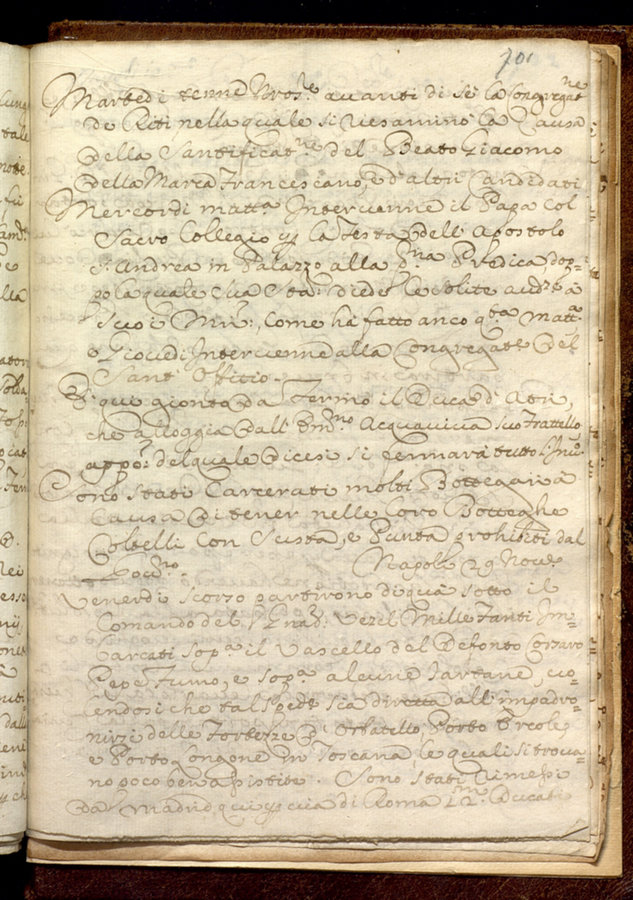 701
Martedi tenne Nros.e avanti di se la Congregat.ne
de Riti nella quale si riesaminò la Causa
della Santificat.ne del Beato Giacomo
della Marca Francescano, e d'altri Candidati
Mercordi matt.a Intervenne il Papa col
Sacro Collegio p la festa dell' Apostolo
S. Andrea in Palazzo alla p.ma Predica dop=
po la quale Sua Sta: diede le solite audze a
Suoi Mri:, come ha fatto anco q.ta matt.a
e Giovedi Intervenne alla Congregat.e del
Sant' Offitio.
È qui gionto da Fermo il Duca d' Atri,
che alloggia dall' Em.mo Acquaviva suo fratello
appo: del quale dicesi si fermarà tutto l'Inv.o
Sono stati Carcerati molti Bottegari à
causa di tener nelle loro Botteghe
Coltelli con Susta, e Punta prohibiti dal
Gov.no
Napoli 29 Nov.e
Venerdi scorzo partirono di qua sotto il
Comando del Gnãl: Vezel mille fanti Im=
barcati sop.a il Vascello del defonto Corzaro
Pepe Fumo, e sop.a alcune Tartane, cre=
dendosi che tal sped.e sia diretta all' impadro=
nirsi delle Fortezze d' Orbatello, Porto Ercole,
e Porto Longone in Toscana, le quali si trova=
no poco ben apistite. Sono stati rimessi
da Madrid qui p via di Roma Ducati